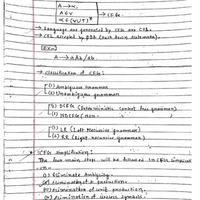 A → α
A ∈ V
α ∈ (VUT)* → CFG
→ Language are generated by CFGs are CFLs.
→ CFL accepted by PDA (Push Down Automata).
Exn
A → aAb/ab
→ Classification of CFGs:
(1) Ambiguous Grammar
(2) Unambiguous grammar
(1) DCFG (Deterministic context free grammar)
(2) NDCFG / non-
(1) LR (Left Recursive grammar)
(2) RR (Right recursive grammar)
CFG Simplification:
The four main steps will be followed in CFG
(1) Eliminate Ambiguity.
(2) elimination of production.
(3) elimination of unit production.
(4) elimination of useless symbols.